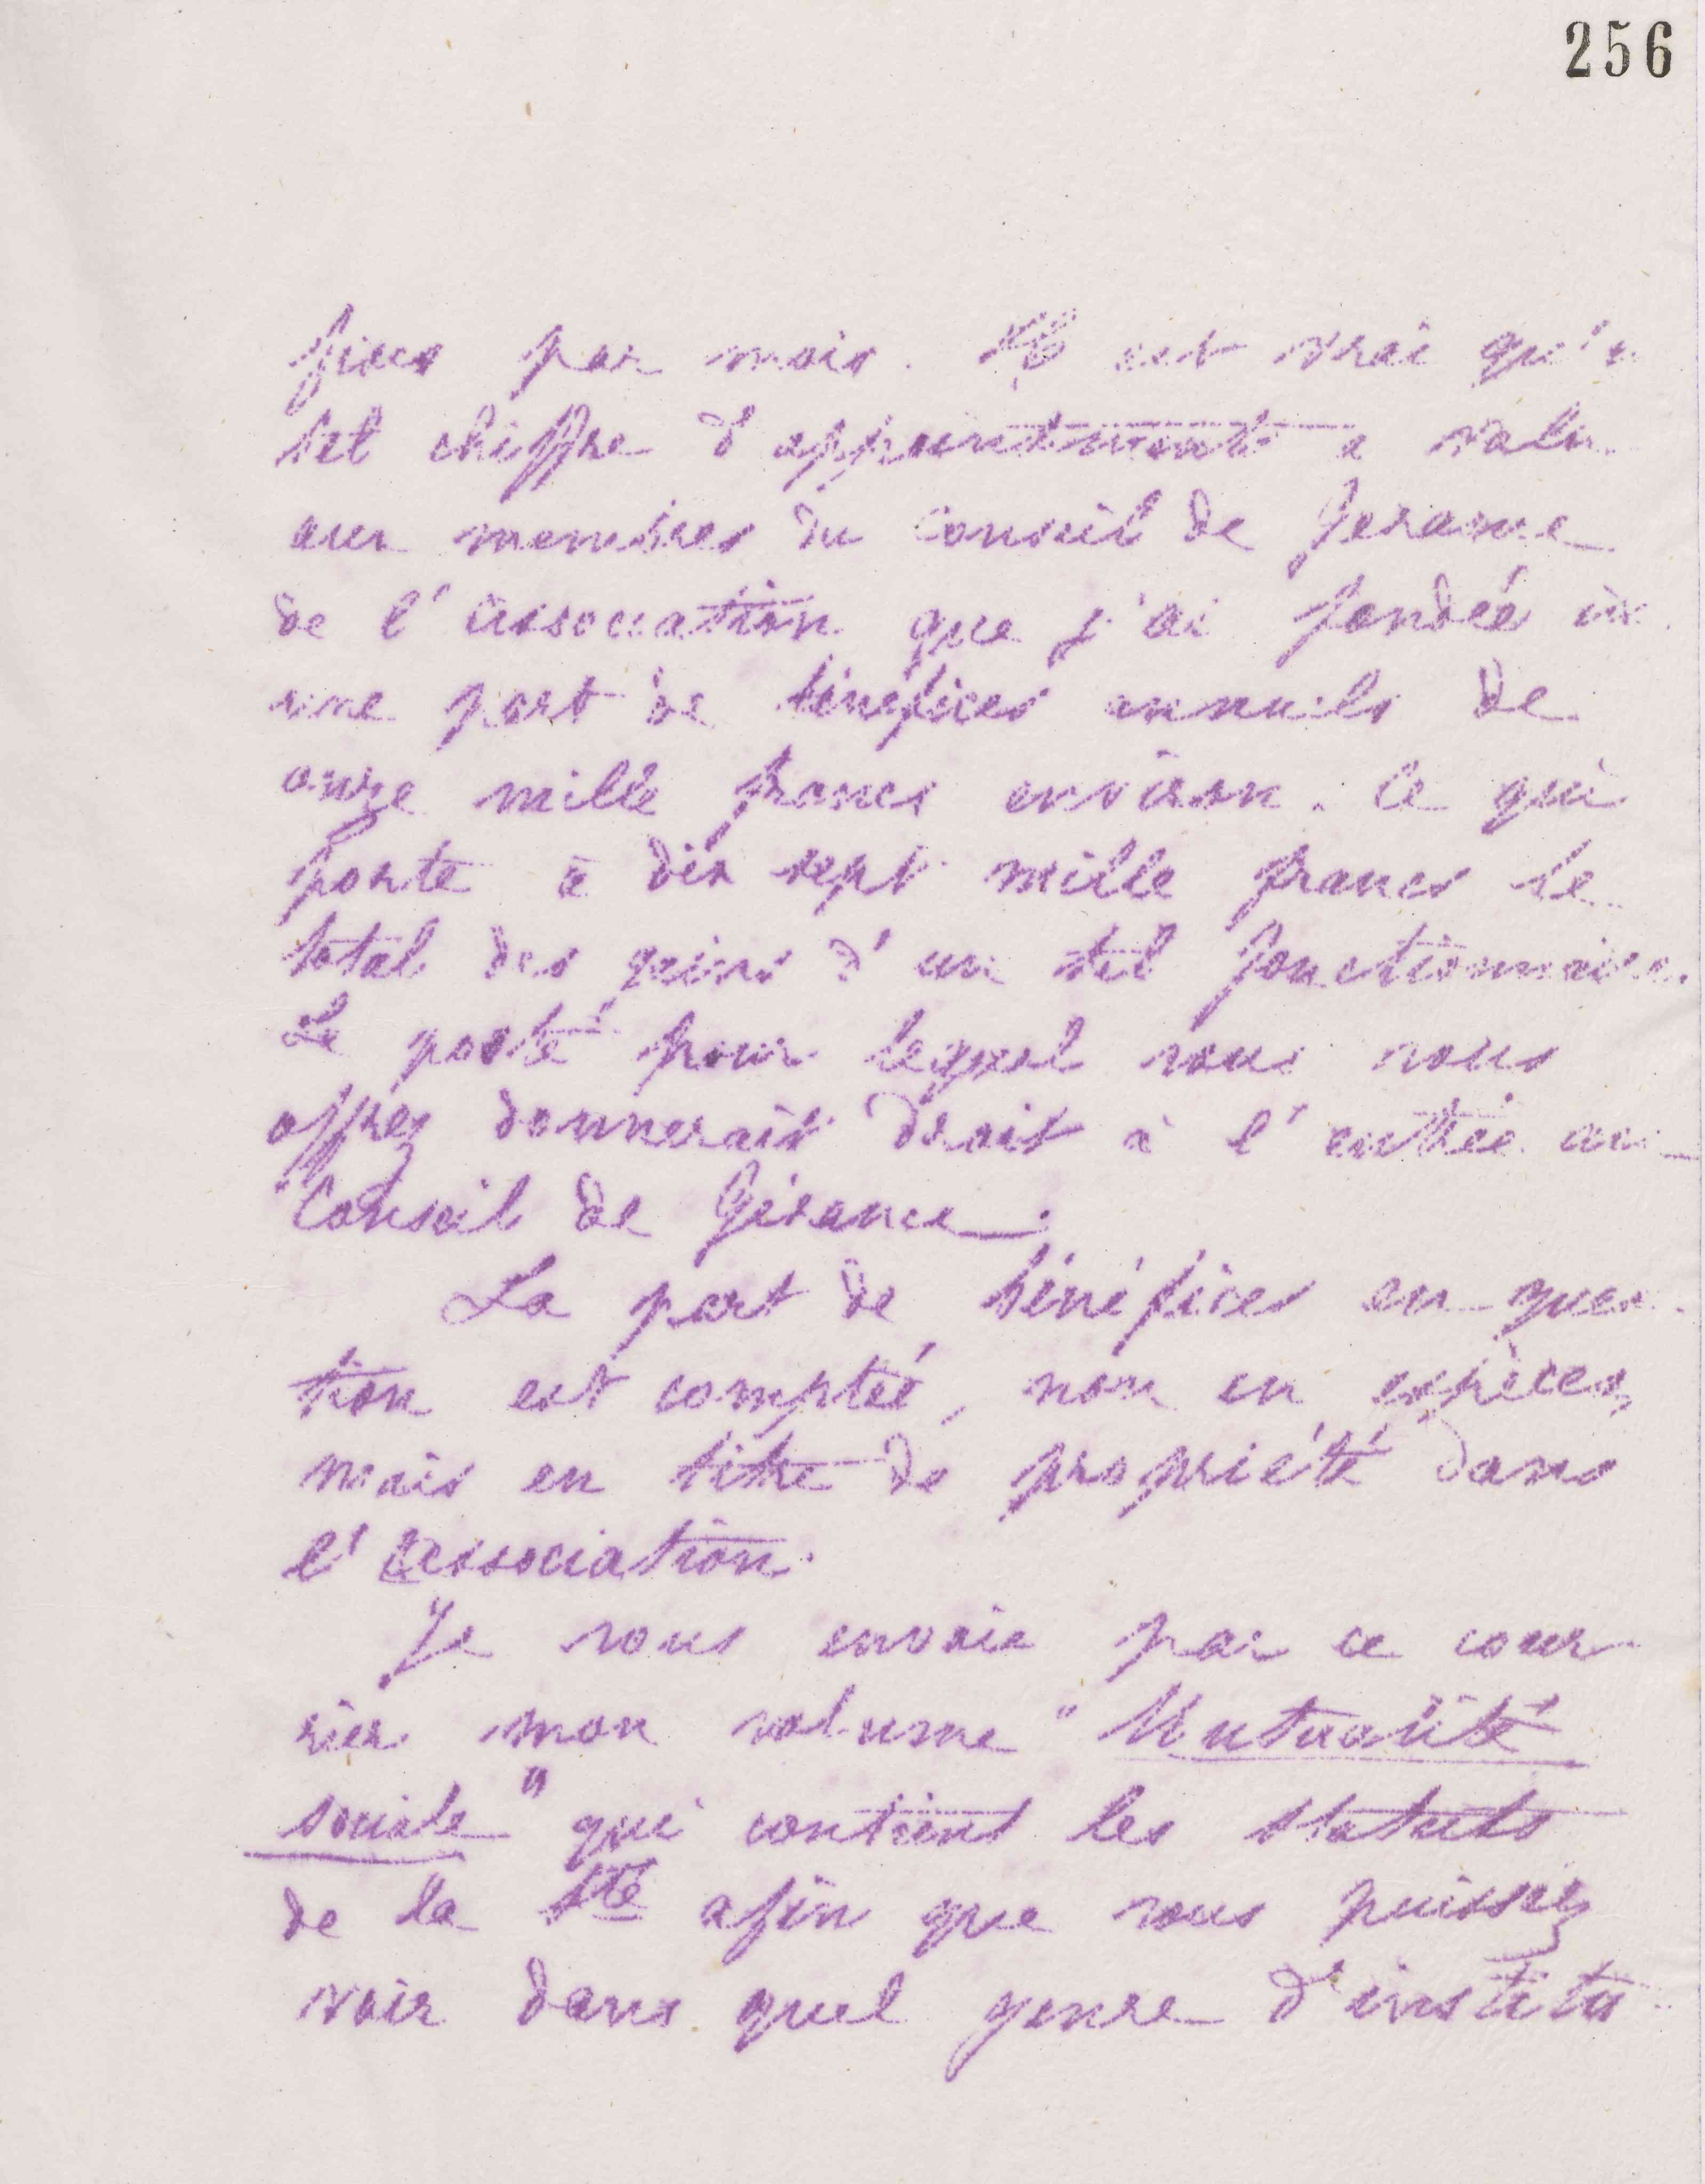 256
fixes par mois. Il est vrai qu'u
tel chiffre d'appointement a valu
aux membres du Conseil de Gerance
de l'association que j'ai fondée ici
une part de bénéfices annuels de
onze mille francs environ. Ce qui
porte à dix sept mille francs le
total des gains d'un tel fonctionnaire.
Le poste pour lequel vous vous
offrez donnerait droit à l'entrée au
Conseil de Gérance.
La part de bénéfices en ques
tion est comptée, non en espèces,
mais en titre de propriété dans
l'Association.
Je vous envoie par ce cour
rier mon volume "Mutualité
sociale" qui contient les statuts
de la Sté afin que vous puissiez
voir dans quel genre d'institu